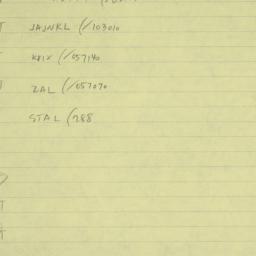 JAJNKL (/103010
KPIX (/057140
ZAL (/057070
STAL (288